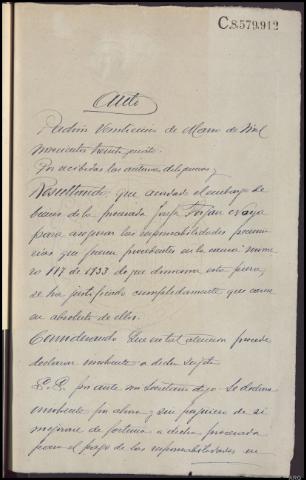 C.8.579.912
Auto
Padrón Veinticinco de Marzo de Mil
novecientos treinta
Por recibidas las anteriores diligencias y
Resultando que acordado el embargo de
bienes de la procesada Josefa
para asegurar las responsabilidades pecunia-
rias que fueran procedentes en la causa núme-
ro 117 de 1933 de que dimana esta pieza,
se ha justificado cumplidamente que carece
en absoluto de ellos.
Considerando Que en tal atención procede
declarar insolvente a dicha sujeta
S.S. por ante mi Secretario dijo: Se declara
insolvente por ahora y sin perjuicio de si
mejorare de fortuna a dicha procesada
para el pago de las responsabilidades en